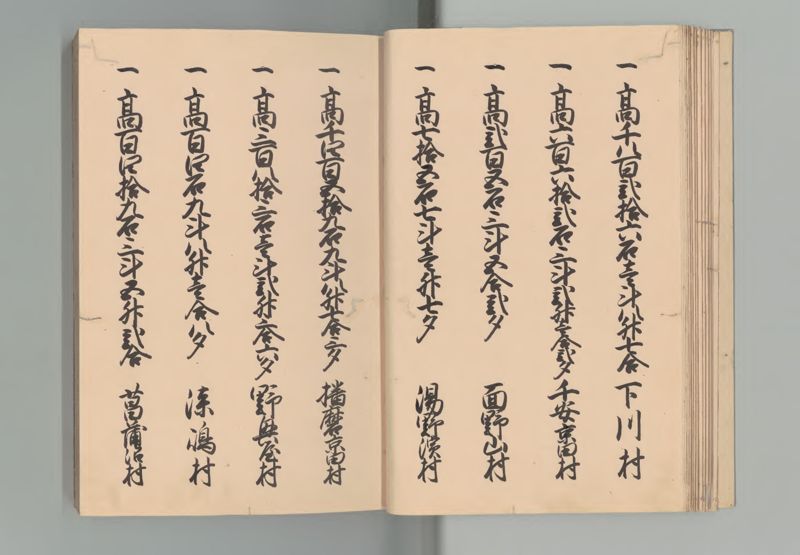 一高千八百弐拾六石壱斗八升七合 下川村
一高六百六拾弐石三斗弐升壱合弐夕 千安京田村
一高弐百五石三斗五合弐夕 面野山村
一高七拾五石七斗壱升七夕 湯野浜村
一高千四百五拾九石九斗八升七合六夕 播磨京田村
一高三百八拾三石壱斗弐升六合六夕 野興屋村
一高百四石九斗八升壱合八夕 村
一高百四拾九石三斗五升弐合 菖蒲沼村